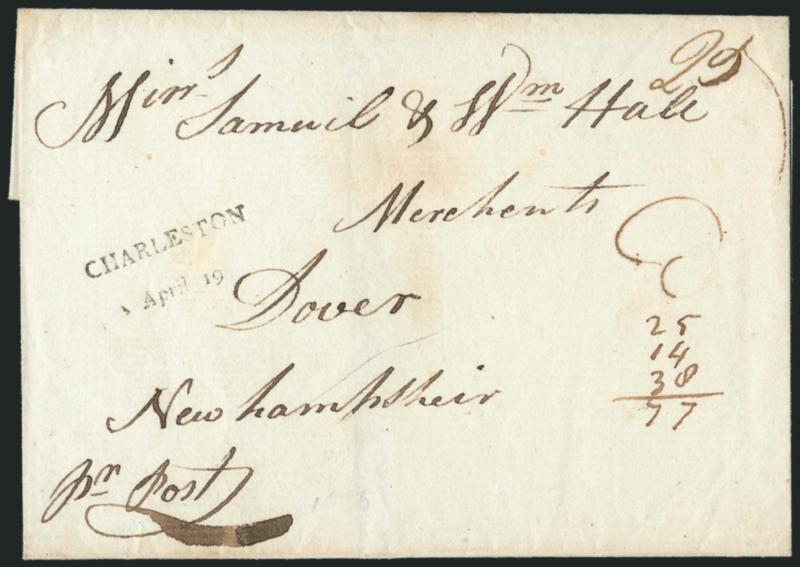 25
Mirrs Samuil & Wm Hale
Merchents
CHARLESTON
April 19
Dover
25
14
38
77
Newhampsheir
pr post